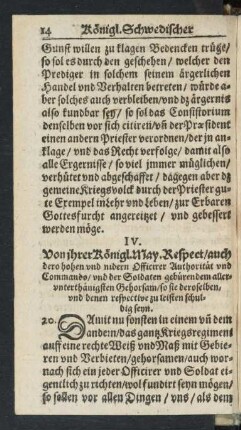 14 Königl. Schwedischer
Gunst willen zu klagen Bedencken trüge/
so sol es durch den geschehen / welcher den
Prediger in solchem seinem ärgerlichen
Handel und Verhalten betreten / würde a-
ber solches auch verbleiben/und dz ärgernis
also kundbar seyn/ so sol das Consistorium
denselben vor sich citiren/uñ der Præsident
einen andern Priester verordnen/der jn an-
klage/ und das Recht verfolge/ damit also
alle Ergernisse / so viel jmmer müglichen/
verhütet und abgeschaffet / dagegen aber dz
gemeine Kriegsvolck durch der Priester gu-
te Exempel in Lehr und Leben/ zur Erbaren
Gottesfurcht angereitzet / und gebessert
werden möge.
IV.
Von ihrer Königl. May. Respect/ auch
dero hohen und nidern Officirer Authorität und
Commando/ und der Soldaten gebürendem aller-
unterthänigsten Gehorsam/ so sie deroselben/
und denen respectivè zu leisten schul-
dig seyn.
20. Damit nu sonsten in einem uñ dem
andern/das gantz Kriegsregiment
auff eine rechte Weiß und Maß mit Gebie-
ren und Verbieten/gehorsamen/auch wor-
nach sich ein jeder Officirer und Soldat ei-
gentlich zu richten/wol fundirt seyn mögen/
so sollen vor allen Dingen / uns/ als dem